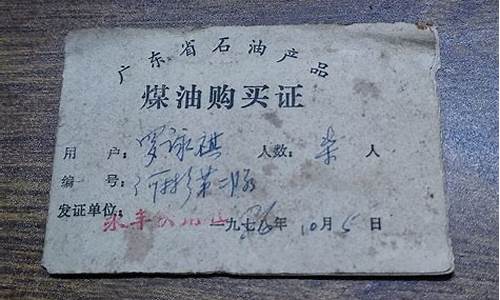 广东省石油产品
煤油购买证
用户：罗咏祺 人数：柒人
编号：
发证单位： 一九七 年10月5日